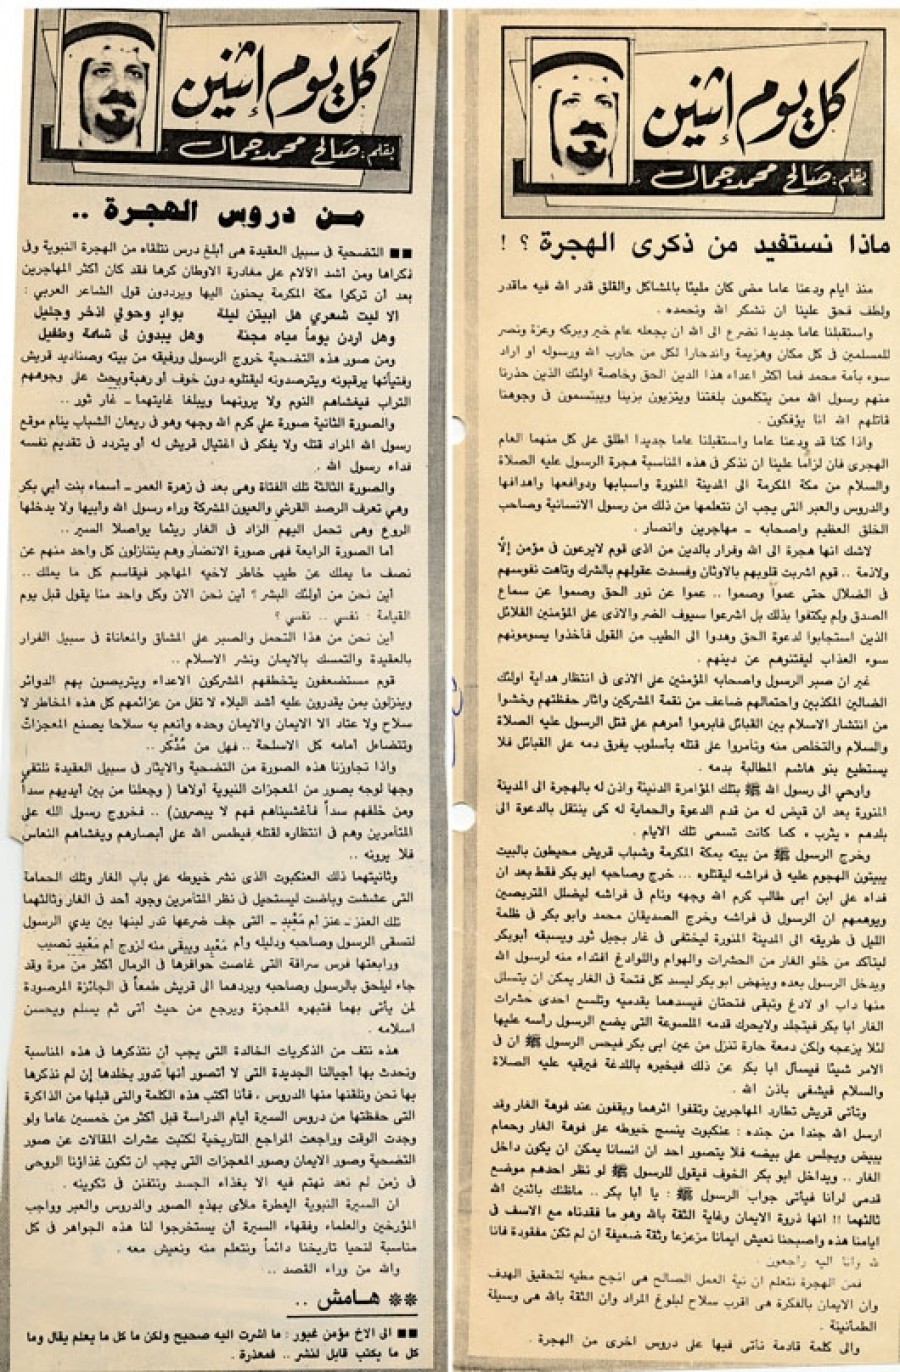 كل يوم إثنين
بقلم: صالح محمد جمال
ماذا نستفيد من ذكرى الهجرة ؟ !
منذ ايام ودعنا عاما مضى كان مليئا بالمشاكل والقلق قدر الله فيه ماقدر
ولطف فحق علينا ان نشكر الله ونحمده .
واستقبلنا عاما جديدا نضرع الى الله ان يجعله عام خير وبركه وعزة ونصر
للمسلمين في كل مكان وهزيمة واندحارا لكل من حارب الله ورسوله او اراد
سوء بأمة محمد فما اكثر اعداء هذا الدين الحق وخاصة اولئك الذين حذرنا
منهم رسول الله ممن يتكلمون بلغتنا ويتزيون بزينا ويبتسمون في وجوهنا
قاتلهم الله انا يؤفكون .
واذا كنا قد ودعنا عاما واستقبلنا عاما جديدا اطلق على كل منهما العام
الهجرى فان لزاما علينا ان نذكر في هذه المناسبة هجرة الرسول عليه الصلاة
والسلام من مكة المكرمة الى المدينة المنورة واسبابها ودوافعها واهدافها
والدروس والعبر التى يجب ان نتعلمها من ذلك من رسول الانسانية وصاحب
الخلق العظيم واصحابه ـ مهاجرين وانصار .
لاشك انها هجرة الى الله وفرار بالدين من اذى قوم لايرعون في مؤمن إلاّ
ولاذمة .. قوم اشربت قلوبهم بالاوثان وفسدت عقولهم بالشرك وتاهت نفوسهم
في الضلال حتى عموا وصموا .. عموا عن نور الحق وصموا عن سماع
الصدق ولم يكتفوا بذلك بل اشرعوا سيوف الضر والاذى على المؤمنين القلائل
الذين استجابوا لدعوة الحق وهدوا الى الطيب من القول فأخذوا يسومونهم
سوء العذاب ليفتنوهم عن دينهم .
غير ان صبر الرسول واصحابه المؤمنين على الاذى في انتظار هداية اولئك
الضالين المكذبين واحتمالهم ضاعف من نقمة المشركين واثار حفظتهم وخشوا
من انتشار الاسلام بين القبائل فابرموا أمرهم على قتل الرسول عليه الصلاة
والسلام والتخلص منه وتآمروا على قتله بأسلوب يفرق دمه على القبائل فلا
يستطيع بنو هاشم المطالبة بدمه .
وأوحي الى رسول الله ﷺ بتلك المؤامرة الدنيئة واذن له بالهجرة الى المدينة
المنورة بعد ان قيض له من قدم الدعوة والحماية له كى ينتقل بالدعوة الى
بلدهم « يثرب » كما كانت تسمى تلك الايام .
وخرج الرسول ﷺ من بيته بمكة المكرمة وشباب قريش محيطون بالبيت
يبيتون الهجوم عليه في فراشه ليقتلوه ... خرج وصاحبه ابو بكر فقط بعد ان
فداه على ابن ابى طالب كرم الله وجهه ونام في فراشه ليضلل المتربصين
ويوهمهم ان الرسول في فراشه وخرج الصديقان محمد وابو بكر في ظلمة
الليل في طريقه الى المدينة المنورة ليختفى في غار بجبل ثور ويسبقه أبوبكر
ليتأكد من خلو الغار من الحشرات والهوام واللوادغ افتداء منه لرسول الله
ويدخل الرسول بعده وينهض ابو بكر ليسد كل فتحة في الغار يمكن ان يتسلل
منها داب او لادغ وتبقى فتحتان فيسدهما بقدميه وتلسع احدى حشرات
الغار ابا بكر فيتجلد ولايحرك قدمه الملسوعة التى يضع الرسول رأسه عليها
لئلا يزعجه ولكن دمعة حارة تنزل من عين ابى بكر فيحس الرسول ﷺ ان في
الامر شيئا فيسأل ابا بكر عن ذلك فيخبره باللدغة فيرقيه عليه الصلاة
والسلام فيشفى باذن الله .
وتأتى قريش تطارد المهاجرين وتقفوا اثرهما ويقفون عند فوهة الغار وقد
ارسل الله جندا من جنده : عنكبوت ينسج خيوطه على فوهة الغار وحمام
يبيض ويجلس على بيضه فلا يتصور احد ان انسانا يمكن ان يكون داخل
الغار .. ويداخل ابو بكر الخوف فيقول للرسول ﷺ لو نظر احدهم موضع
قدمى لرآنا فيأتى جواب الرسول ﷺ : يا أبا بكر .. ماظنك باثنين الله
ثالثهما !! انها ذروة الايمان وغاية الثقة بالله وهو ما فقدناه مع الاسف في
ايامنا هذه واصبحنا نعيش ايمانا مزعزعا وثقة ضعيفة ان لم تكن مفقودة فانا
لله وانا اليه راجعون .
فمن الهجرة نتعلم ان نية العمل الصالح هى انجح مطيه لتحقيق الهدف
وان الايمان بالفكرة هى اقرب سلاح لبلوغ المراد وان الثقة بالله هى وسيلة
الطمأنينة .
والى كلمة قادمة نأتى فيها على دروس اخرى من الهجرة .
كل يوم إثنين
بقلم: صالح محمد جمال
من دروس الهجرة ..
■■ التضحية في سبيل العقيدة هى أبلغ درس نتلقاه من الهجرة النبوية وفى
ذكراها ومن أشد الآلام على مغادرة الاوطان كرها فقد كان أكثر المهاجرين
بعد أن تركوا مكة المكرمة يحنون اليها ويرددون قول الشاعر العربي :
الا ليت شعري هل ابيتن ليلة بوادٍ وحولي اذخر وجليل
وهل اردن يوماً مياه مجنة وهل يبدون لى شامة وطفيل
ومن صور هذه التضحية خروج الرسول ورفيقه من بيته وصناديد قريش
وفتيأنها يرقبونه ويترصدونه ليقتلوه دون خوف أو رهبة ويحث على وجوههم
التراب فيغشاهم النوم ولا يرونهما ويبلغا غايتهما ـ غار ثور ..
والصورة الثانية صورة على كرم الله وجهه وهو في ريعان الشباب ينام موقع
رسول الله المراد قتله ولا يفكر فى اغتيال قريش له أو يتردد في تقديم نفسه
فداء رسول الله .
والصورة الثالثة تلك الفتاة وهى بعد في زهرة العمر ـ أسماء بنت أبي بكر
وهي تعرف الرصد القرشي والعيون المشركة وراء رسول الله وأبيها ولا يدخلها
الروع وهى تحمل اليهم الزاد فى الغار ريثما يواصلا السير ..
أما الصورة الرابعة فهى صورة الانصار وهم يتنازلون كل واحد منهم عن
نصف ما يملك عن طيب خاطر لاخيه المهاجر فيقاسم كل ما يملك ..
أين نحن من أولئك البشر ؟ أين نحن الان وكل واحد منا يقول قبل يوم
القيامة : نفسي .. نفسي ؟
أين نحن من هذا التحمل والصبر على المشاق والمعاناة في سبيل الفرار
بالعقيدة والتمسك بالايمان ونشر الاسلام ..
قوم مستضعفون يتخطفهم المشركون الاعداء ويتربصون بهم الدوائر
وينزلون بمن يقدرون عليه أشد البلاء لا تفل من عزائمهم كل هذه المخاطر لا
سلاح ولا عتاد الا الايمان والايمان وحده وأنعم به سلاحا يصنع المعجزات
وتتضاءل أمامه كل الاسلحة .. فهل من مُدَّكر ..
واذا تجاوزنا هذه الصورة من التضحية والايثار في سبيل العقيدة نلتقي
وجها لوجه بصور من المعجزات النبوية أولاها ( وجعلنا من بين أيديهم سداً
ومن خلفهم سداً فأغشيناهم فهم لا يبصرون) .. فخروج رسول الله على
المتآمرين وهم في انتظاره لقتله فيطمس الله على أبصارهم ويغشاهم النعاس
فلا يرونه ..
وثانيتهما ذلك العنكبوت الذى نشر خيوطه على باب الغار وتلك الحمامة
التى عششت وباضت ليستحيل في نظر المتآمرين وجود أحد فى الغار وثالثتهما
تلك العنز ـ عنز أم مَعْبدٍ ـ التى جف ضرعها تدر لبنها بين يدي الرسول
لتسقى الرسول وصاحبه ودليله وأم مَعْبدٍ ويبقى منه لزوج أم مَعْبدٍ نصيب
ورابعتها فرس سراقة التى غاصت حوافرها في الرمال أكثر من مرة وقد
جاء ليلحق بالرسول وصاحبه ويردهما الى قريش طمعاً في الجائزة المرصودة
لمن يأتى بهما فتبهره المعجزة ويرجع من حيث أتى ثم يسلم ويحسن
اسلامه .
هذه نتف من الذكريات الخالدة التى يجب أن نتذكرها في هذه المناسبة
ونحدث بها أجيالنا الجديدة التى لا أتصور أنها تدور بخلدها إن لم نذكرها
بها نحن ونلقنها منها الدروس ، فأنا أكتب هذه الكلمة والتى قبلها من الذاكرة
التى حفظتها من دروس السيرة أيام الدراسة قبل أكثر من خمسين عاما ولو
وجدت الوقت وراجعت المراجع التاريخية لكتبت عشرات المقالات عن صور
التضحية وصور الايمان وصور المعجزات التى يجب ان تكون غذاؤنا الروحى
في زمن لم نعد نهتم فيه الا بغذاء الجسد ونتفنن فى تكوينه .
ان السيرة النبوية العِطرة ملأى بهذه الصور والدروس والعبر وواجب
المؤرخين والعلماء وفقهاء السيرة أن يستخرجوا لنا هذه الجواهر فى كل
مناسبة لنحيا تاريخنا دائماً ونتعلم منه ونعيش معه .
والله من وراء القصد ..
** هامش ..
■■ الى الاخ مؤمن غيور : ما اشرت اليه صحيح ولكن ما كل ما يعلم يقال وما
كل ما يكتب قابل لنشر .. فمعذرة .